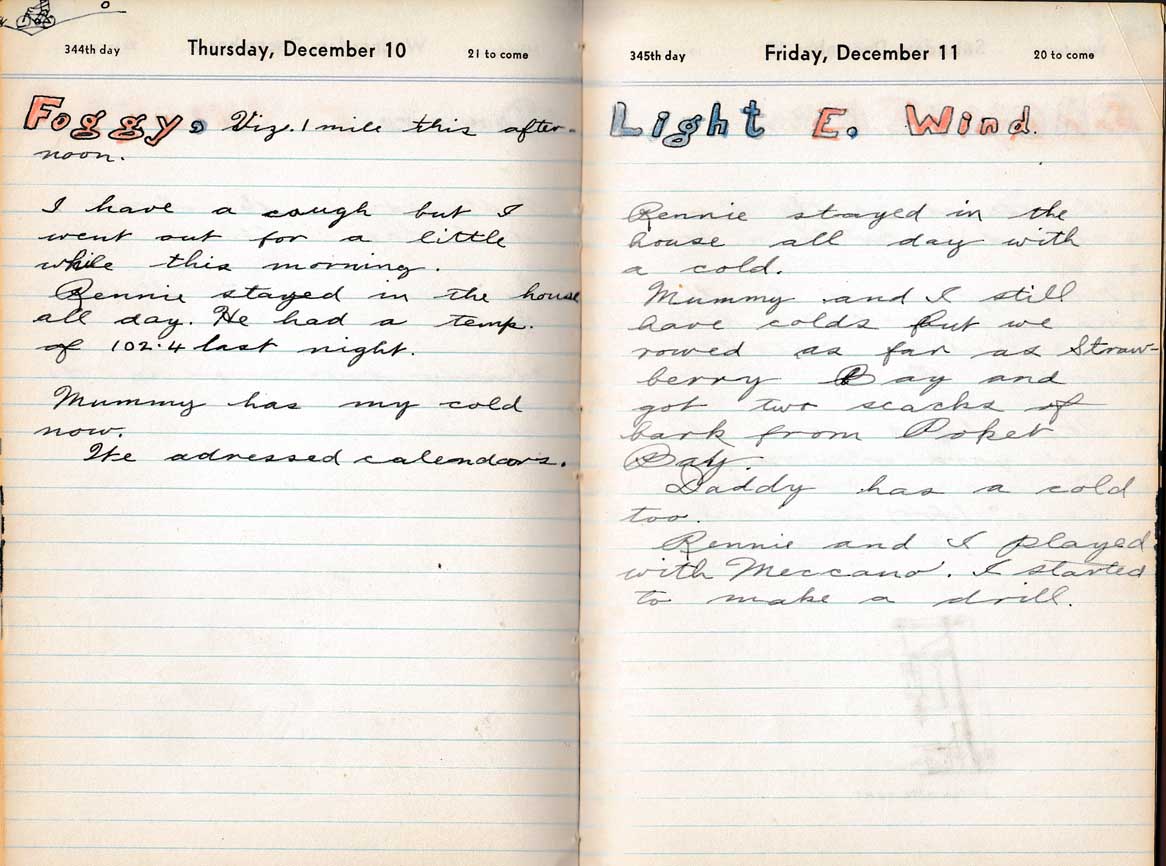 344th day Thursday, December 10 21 to come
Foggy. Viz. 1 mile this after-
noon.
I have a cough but I
went out for a little
while this morning.
Rennie stayed in the house
all day. He had a temp.
of 102.4 last night.
Mummy has my cold
now.
We adressed calendars.
345th day Friday, December 11 20 to come
Light E. Wind.
Rennie stayed in the
house all day with
a cold.
Mummy and I still
have colds but we
rowed as far as Straw-
berry Bay and
got two scacks of
bark from Poket
Bay.
Daddy has a cold
too.
Rennie and I played
with Meccano. I started
to make a drill.